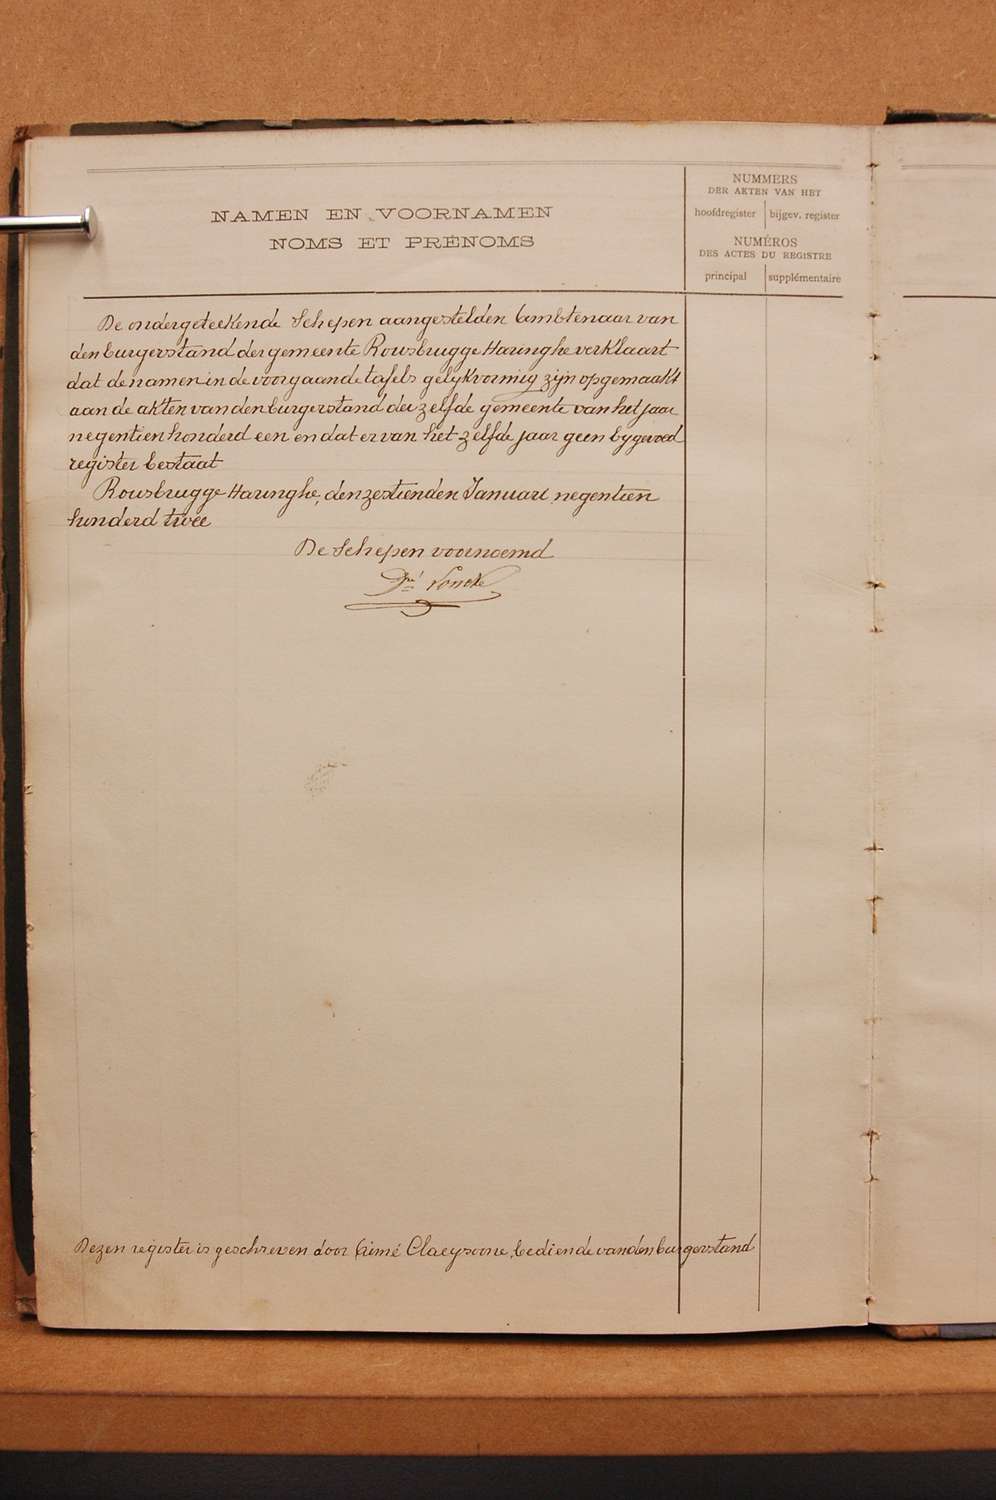 NAMEN EN VOORNAMEN
NOMS ET PRÉNOMS
NUMMERS
DER AKTEN VAN HET
hoofdregister bijgev. register
NUMÉROS
DES ACTES DU REGISTRE
principal supplémentaire
De ondergeteekende Schepen aangestelden Ambtenaar van
den burgerstand der gemeente Rousbrugge Haringhe verklaart
dat de namen in de voorgaande tafels gelykvormig zijn opgemaakt
aan de akten van den burgerstand der zelfde gemeente van het jaar
negentien honderd een en dat er van het zelfde jaar geen bygevoed
register bestaat
Rousbrugge Haringhe, den zestienden Januari negentien
hunderd twee
De Schepen voornoemd
Dezen register is geschreven door Aimé Claeysoone, bediende van den burgerstand